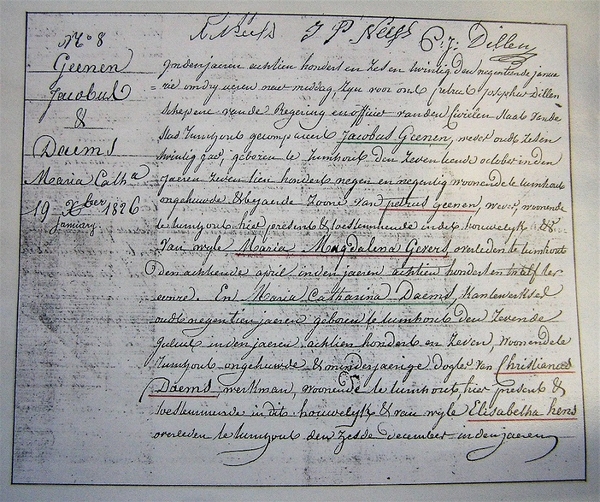 J P Nefs P: J: Dillen
N° 8
Geenen
Jacobus
&
Daems
Maria Catha
19 Xber 1826
January
In den jaeren achtien hondert en zes en twintig den negentiende janua
= rie om dry ueren naer middag, zyn voor ons petrus Josephus Dillen
Schepene van de Regering en officier van den Civielen staat van de
stad Turnhout gecompareert Jacobus Geenen, wever oudt zes en
twintig jaer, geboren te Turnhout den zeventienste october in den
jaeren zeventien hondert negen en negentig woonende te turnhout
ongehuwde & bejaerde zoone van petrus geenen, wever, woonende
te turnhout hier present & toestemmende in dit houwelyk &
van wyle Maria Magdalena Gevers overleden te turnhout
den achtiende april in den jaeren achtien hondert en twelf ter
eenre. En Maria Catharina Daems, Kantwerkster
oudt negentien jaeren geboren te turnhout den zevende
in den jaeren achtien hondert en zeven, woonende te
turnhout ongehuwde & minderjaerige dogter van Christianus
Daems, werkman, woonende te turnhout, hier present &
toestemmende in dit houwelyk & van wyle Elisabetha kens
overleden te turnhout den zesde december in den jaeren